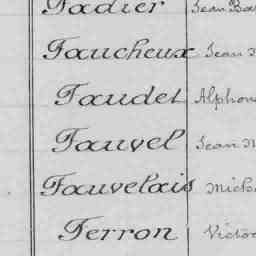 Fadier Jean Ba
Faucheux Jean
Faudet Alphon
Fauvel Jean M
Fauvelais Mich
Ferron Victo